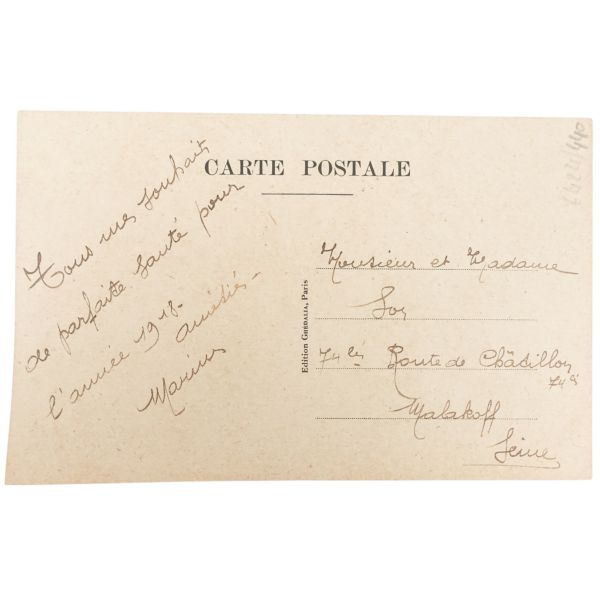 CARTE POSTALE
Tous mes souhaits
de parfaite santé pour
l'année 1918.
amitiés
Marius
Edition GUEDALIA, Paris
Monsieur et Madame
74 Route de Châtillon
74
Malakoff
Seine